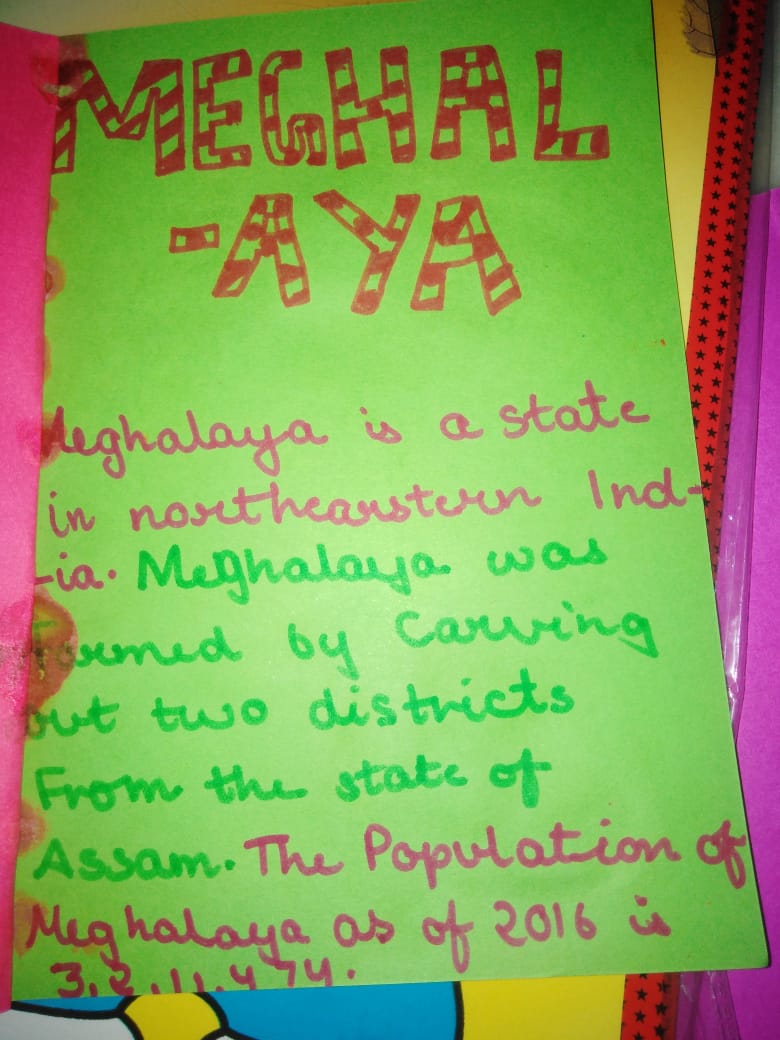 MEGHAL
-AYA
Meghalaya is a state
in northearstern Ind-
-ia. Meghalaya was
Formed by Carving
out two districts
From the state of
Assam. The Population of
Meghalaya as of 2016 is
3,2,11,474.